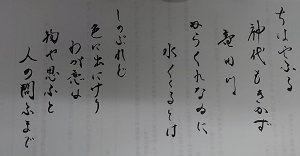 ちはやふる
神代もきかず
竜田川
からくれなゐに
水くくるとは
しのぶれど
色に出にけり
わが恋は
物や思ふと
人の問ふまで